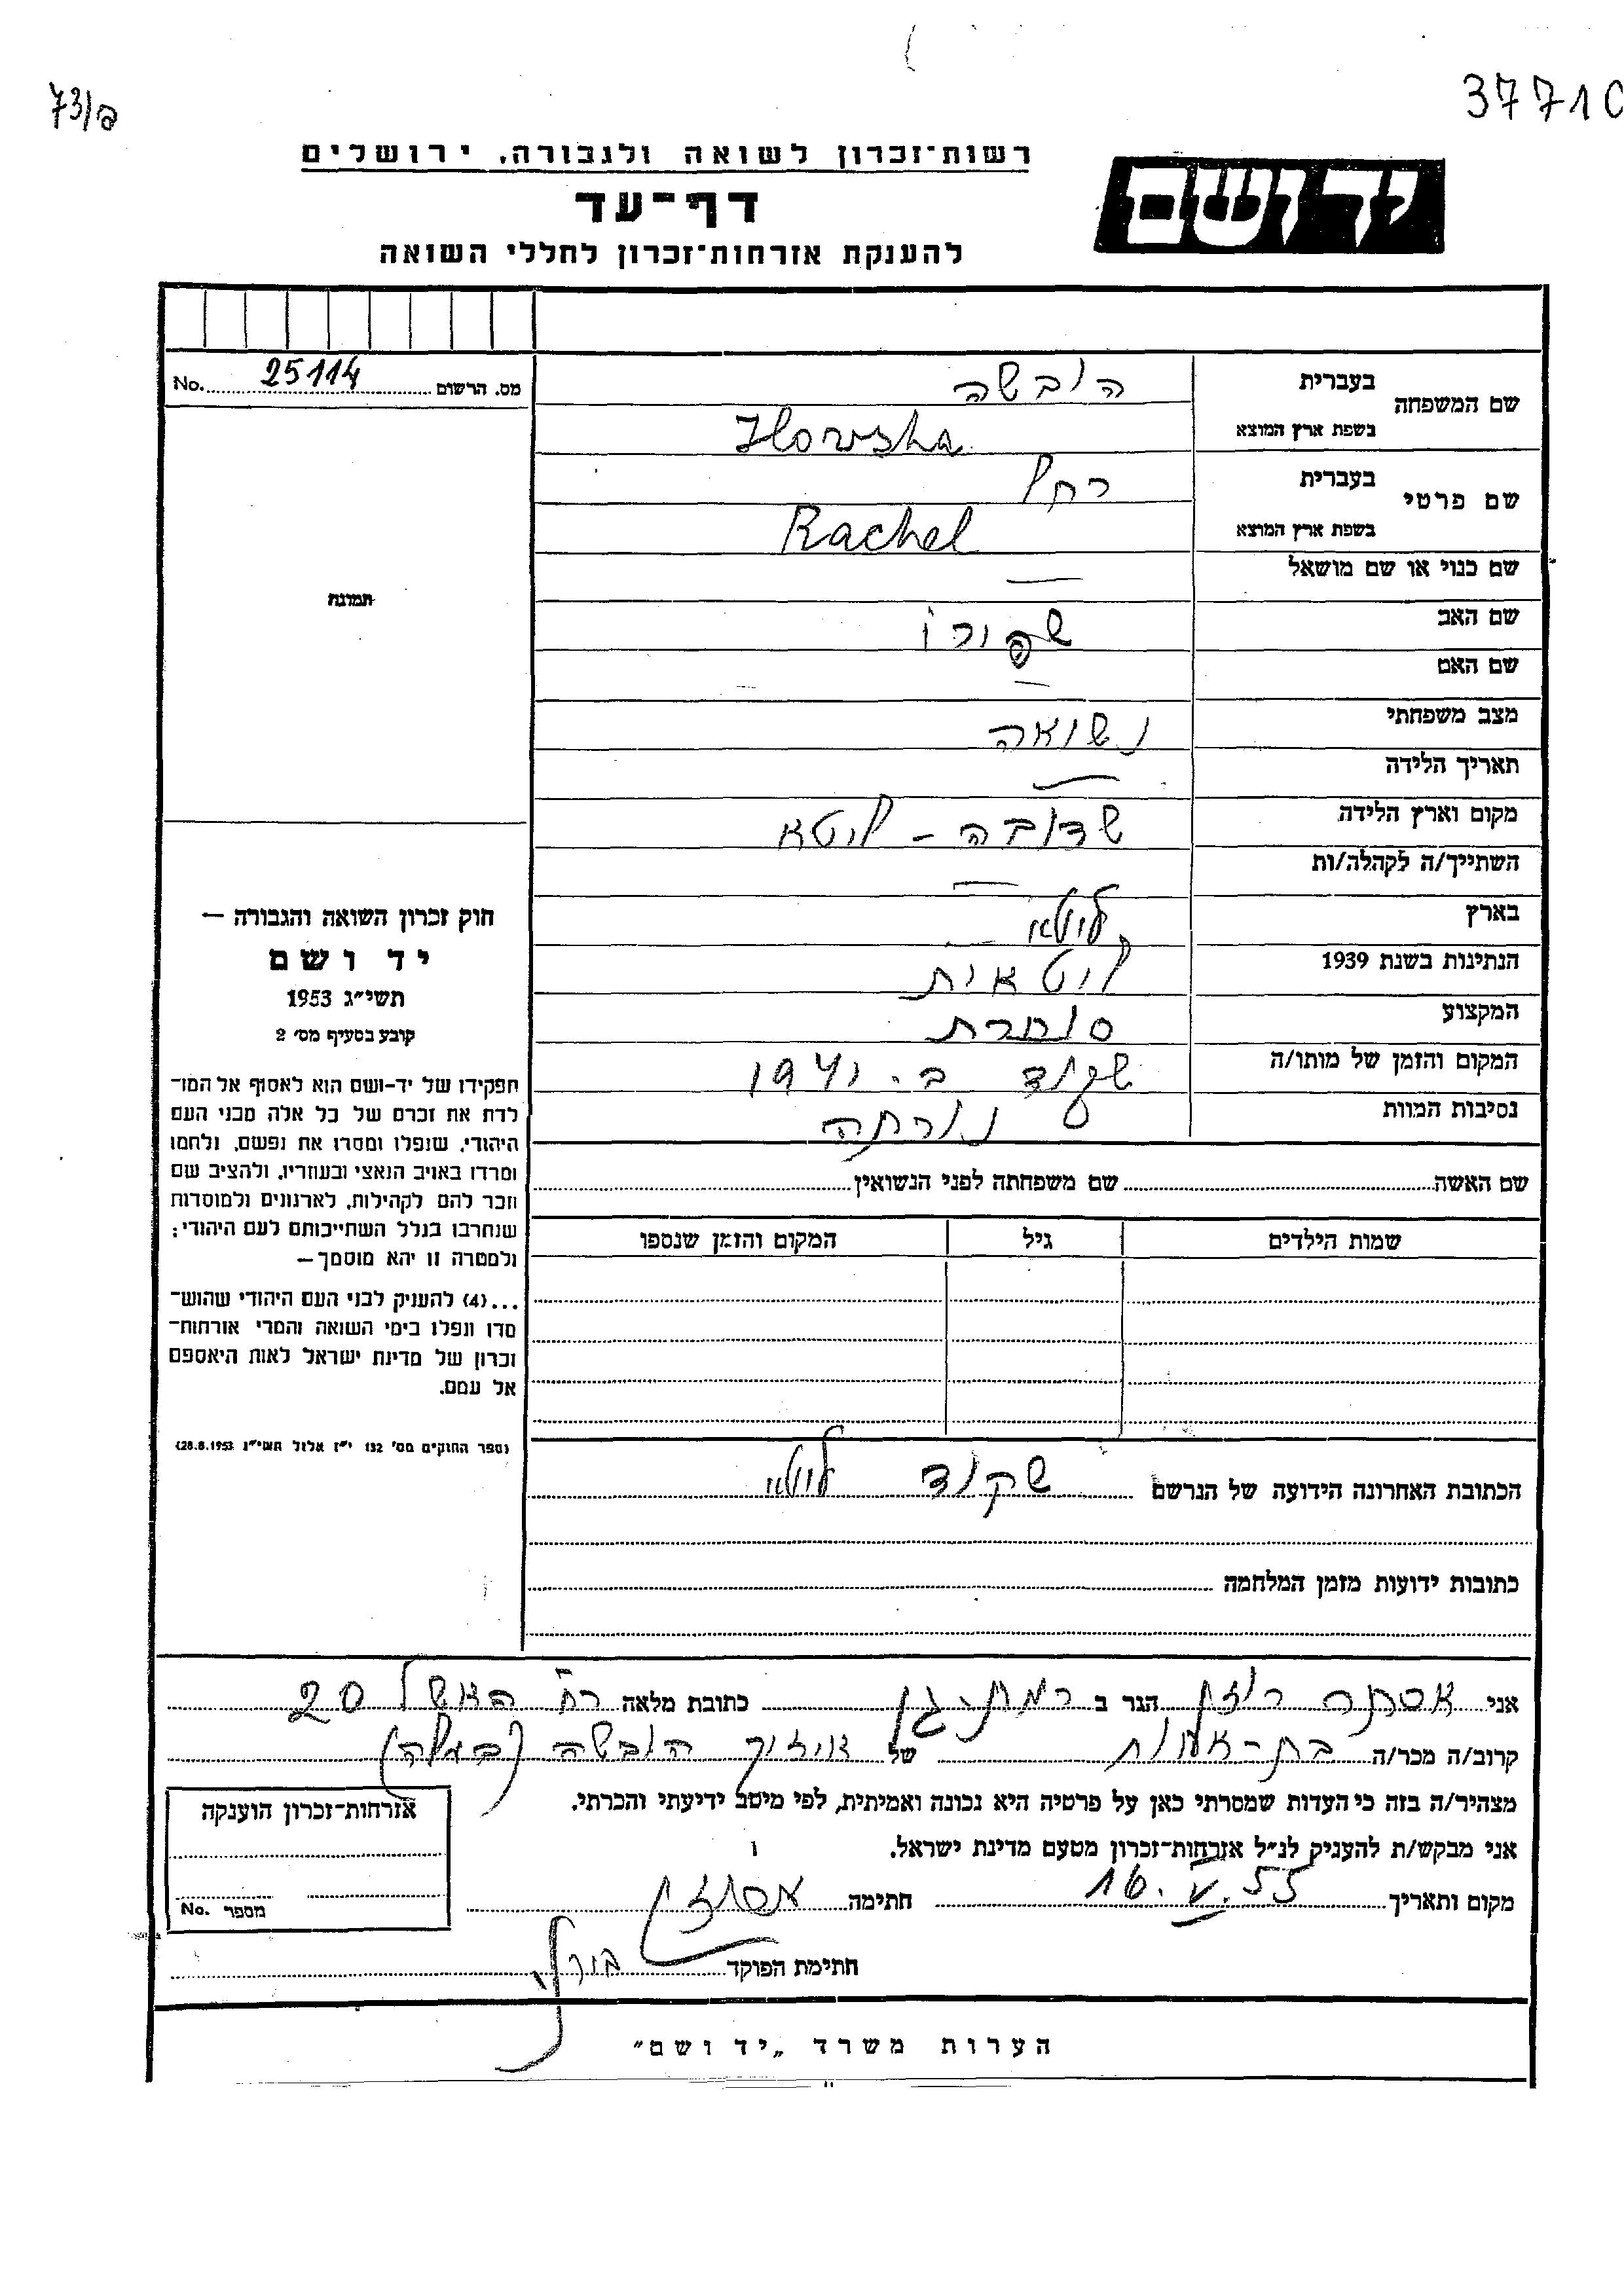 73/ב
37710
רשות־זכרון לשואה ולגבורה, ירושלים
יד ושם
דף־עד
להענקת אזרחות־זכרון לחללי השואה
מס. הרשום 25114 No.
שם המשפחה בעברית הובשה
בשפת ארץ המוצא Hovsha
שם פרטי בעברית רחל
בשפת ארץ המוצא Rachel
שם כנוי או שם מושאל —
תמונה
שם האב
שם האם —
מצב משפחתי נשואה
תאריך הלידה —
מקום וארץ הלידה שדובה - ליטא
השתייך/ה לקהלה/ות —
בארץ ליטא
הנתינות בשנת 1939 ליטאית
המקצוע סוחרת
המקום והזמן של מותו/ה שקוד ב. 1941
נסיבות המוות נורתה
שם האשה שם משפחתה לפני הנשואין
שמות הילדים גיל המקום והזמן שנספו
הכתובת האחרונה הידועה של הנרשם שקוד ליטא
כתובות ידועות מזמן המלחמה
חוק זכרון השואה והגבורה —
יד ושם
תשי״ג 1953
קובע בסעיף מס׳ 2
תפקידו של יד-ושם הוא לאסוף אל המו־
לדת את זכרם של כל אלה מבני העם
היהודי, שנפלו ומסרו את נפשם, ולחמו
ומרדו באויב הנאצי ובעוזריו, ולהציב שם
וזכר להם לקהילות, לארגונים ולמוסדות
שנחרבו בגלל השתייכותם לעם היהודי;
ולמטרה זו יהא מוסמך—
...(4) להעניק לבני העם היהודי שהוש־
מדו ונפלו בימי השואה והמרי אזרחות־
זכרון של מדינת ישראל לאות היאספם
אל עמם.
(ספר החוקים מס׳ 132 י״ז אלול תשי״ג 28.8.1953)
אני אסתר רוזין הגר ב רמת-גן כתובת מלאה רח׳ האשל 20
קרוב/ה מכר/ה בת-אחות של אייזיק הובשה (בעלה)
מצהיר/ה בזה כי העדות שמסרתי כאן על פרטיה היא נכונה ואמיתית, לפי מיטב ידיעתי והכרתי.
אני מבקש/ת להעניק לנ״ל אזרחות־זכרון מטעם מדינת ישראל.
מקום ותאריך 16.V.55 חתימה
חתימת הפוקד
אזרחות־זכרון הוענקה
מספר No.
הערות משרד „יד ושם״